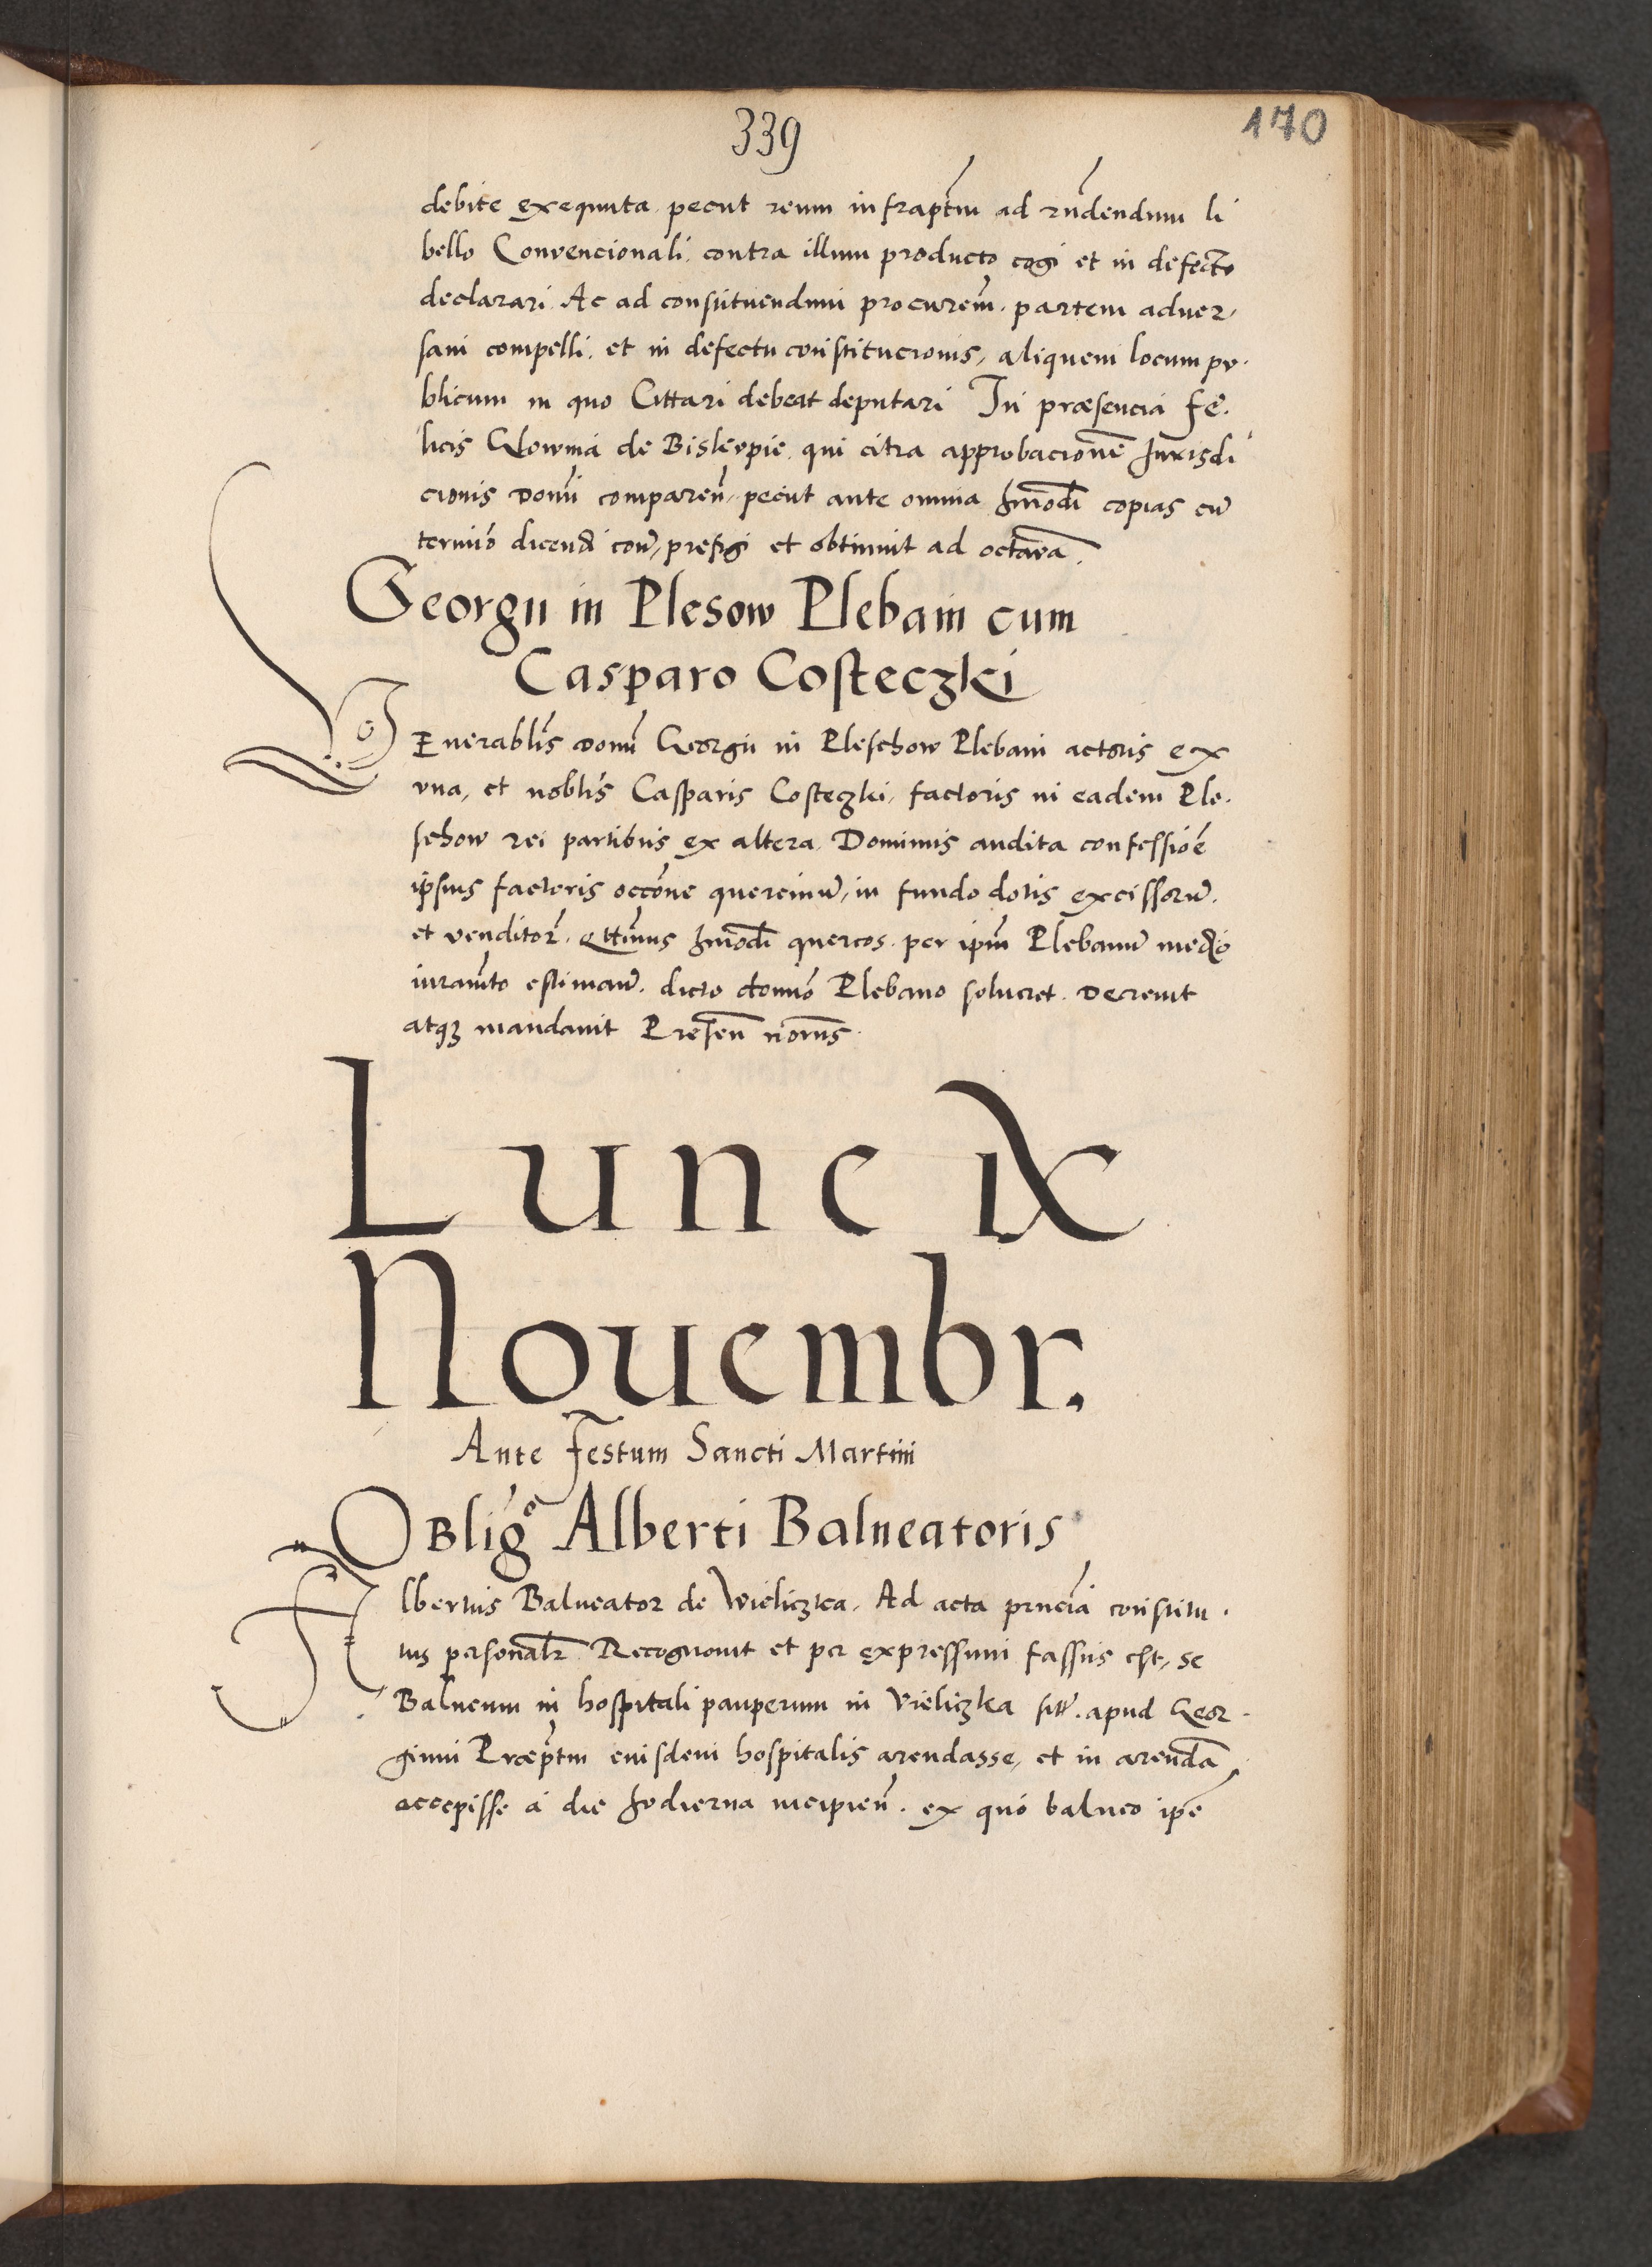 339
170
debite exequuta peciit reum infraptm ad rndendum li
bello Convencionali contra illum producto cogi et in defectu
declarari. Ac ad constituendum procurem partem aduer,
sam compelli, et in defectu constitucionis, aliquem locum pu,
blicum in quo Cittari debeat deputari In præsencia Fe,
licis de qui citra approbacionem Jurisdi
cionis domi comparen, peciit ante omnia hmodi copias cum
termino dicendi con, prefigi et obtinuit ad octavam.
Georgii in Plesow Plebani cum
Casparo Costeczki
VEnerablis domi Georgii in Pleschow Plebani actoris ex
vna, et noblis Casparis Costeczki, factoris in eadem Ple,
schow rei partibus ex altera. Dominus audita confessioe
ipsius factoris occone quercuum, in fundo dotis excissorum
et venditor, hmodi quercos per ipm Plebanum medio
iuramto estimatum. dicto domino Plebano solueret. Decreuit
atq3 mandauit Presen
Lune IX
Nouembr.
Ante Festum Sancti Martini
OBligo Alberti Balneatoris
Albertus Balneator de Wieliczka, Ad acta pncia constitu,
tus personalr Recognouit et per expressum fassus est, se
Balneum in hospitali pauperum in Vieliczka sitt. apud Geor,
gium Præptm eiusdem hospitalis arendasse, et in arendam
accepisse a die hodierna incipien. ex quo balneo ipe